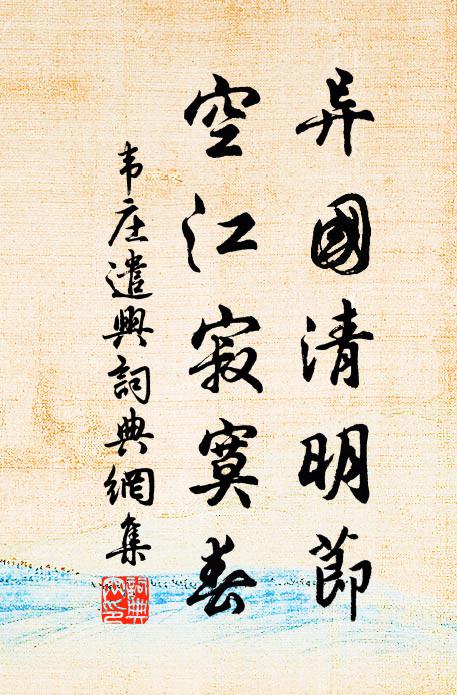 异國清明節
空江寂寞春
韦庄遣興詞典網集